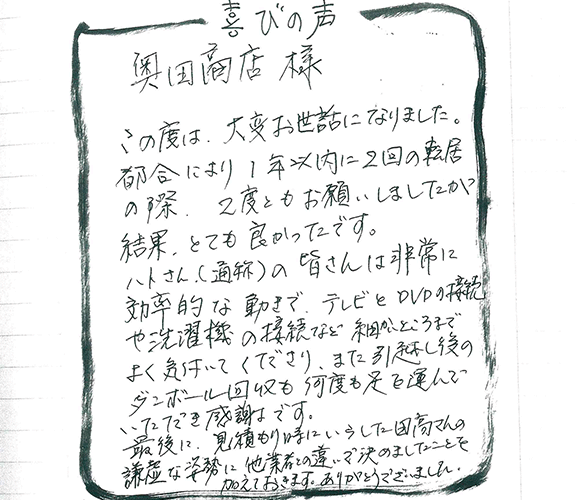 喜びの声
奥田商店 様
この度は、大変お世話になりました。
都合により1年以内に2回の転居
の際、2度ともお願いしましたが
結果、とても良かったです。
ハトさん(通称)の皆さんは非常に
効率的な動きで、テレビとDVDの接続
や洗濯機の接続など細かいところまで
よく気付いてくださり、また引越し後の
ダンボール回収も何度も足を運んで
いただき感謝です。
最後に、見積もり時にいらした田高さんの
謙虚な姿勢に他業者との違いで決めましたことを
加えておきます。ありがとうございました。